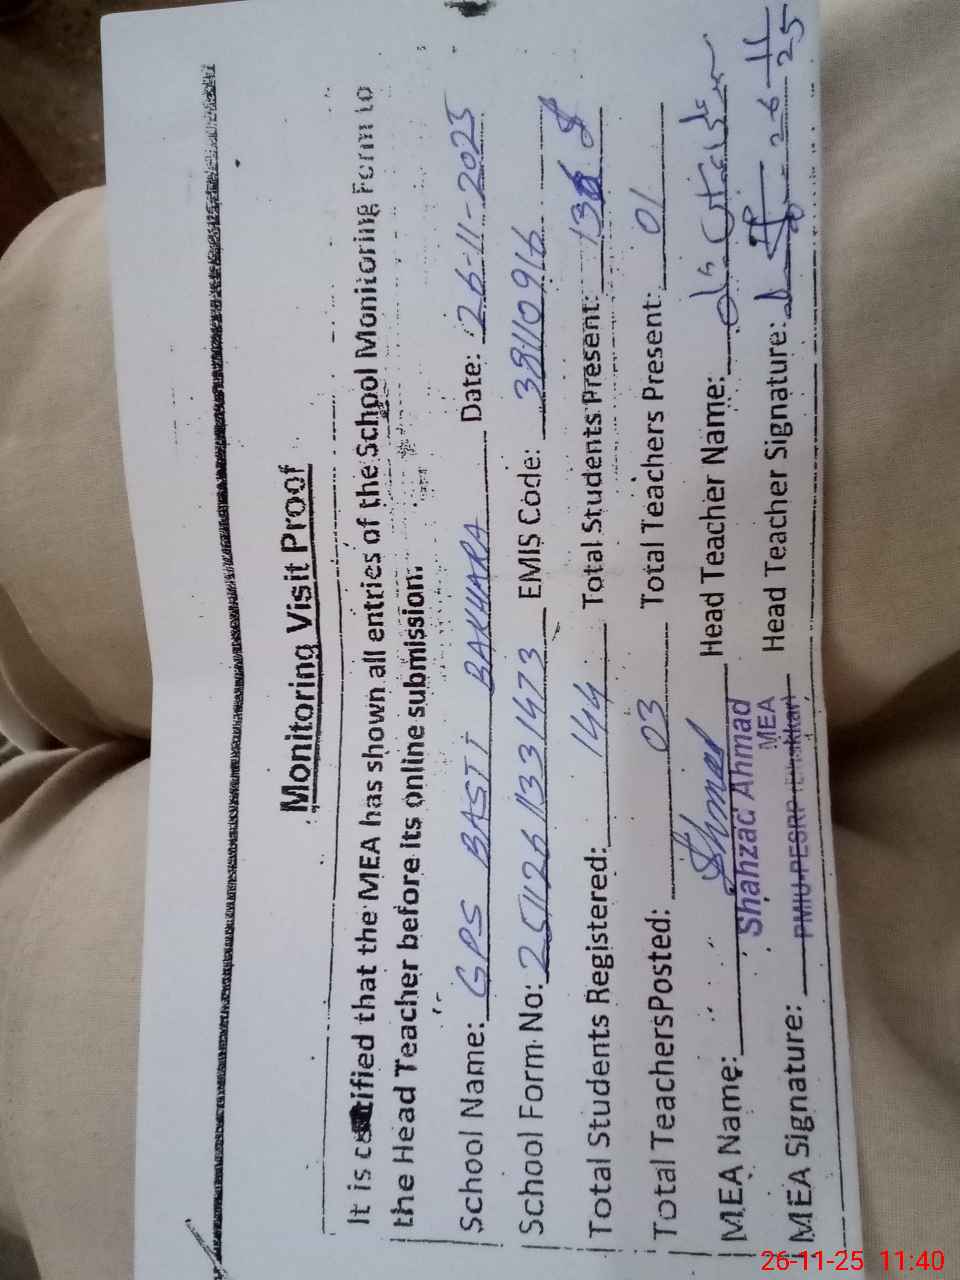 Monitoring Visit Proof
It is certified that the MEA has shown all entries of the School Monitoring Form to
the Head Teacher before its online submission.
School Name: GPS BASTI BAKHARA Date: 26-11-2025
School Form No: 2511261331473 EMIS Code: 39110916
Total Students Registered: 144 Total Students Present: 136
Total TeachersPosted: 03 Total Teachers Present: 01
MEA Name: Head Teacher Name:
Shahzad Ahmad
MEA
MEA Signature: PMIU-PESRP Head Teacher Signature: 26 11
25
26-11-25 11:40